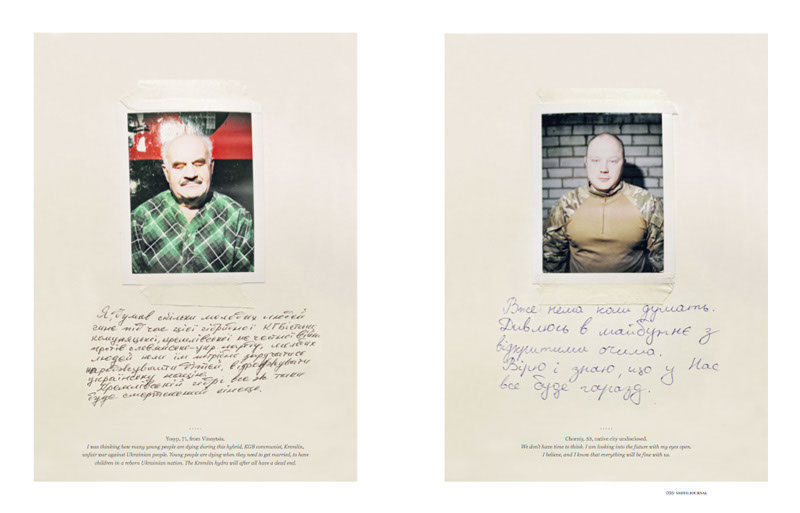 Я думав скільки молодих людей
гине під час цієї гібридної КГБістської
кремлівської не чесної війни
проти
людей коли їм потрібно заручатися
народжувати дітей, відроджувати
українську націю.
Кремлівській гідрі все ж таки
буде смертельний кінець.
Yosyp, 71, from Vinnytsia.
I was thinking how many young people are dying during this hybrid, KGB communist, Kremlin,
unfair war against Ukrainian people. Young people are dying when they need to get married, to have
children in a reborn Ukrainian nation. The Kremlin hydra will after all have a dead end.
Вже нема коли думать.
Дивлюсь в майбутнє з
відкритими очима.
Вірю і знаю, що у Нас
все буде гаразд.
Chorniy, 39, native city undisclosed.
We don't have time to think. I am looking into the future with my eyes open.
I believe, and I know that everything will be fine with us.
JOURNAL